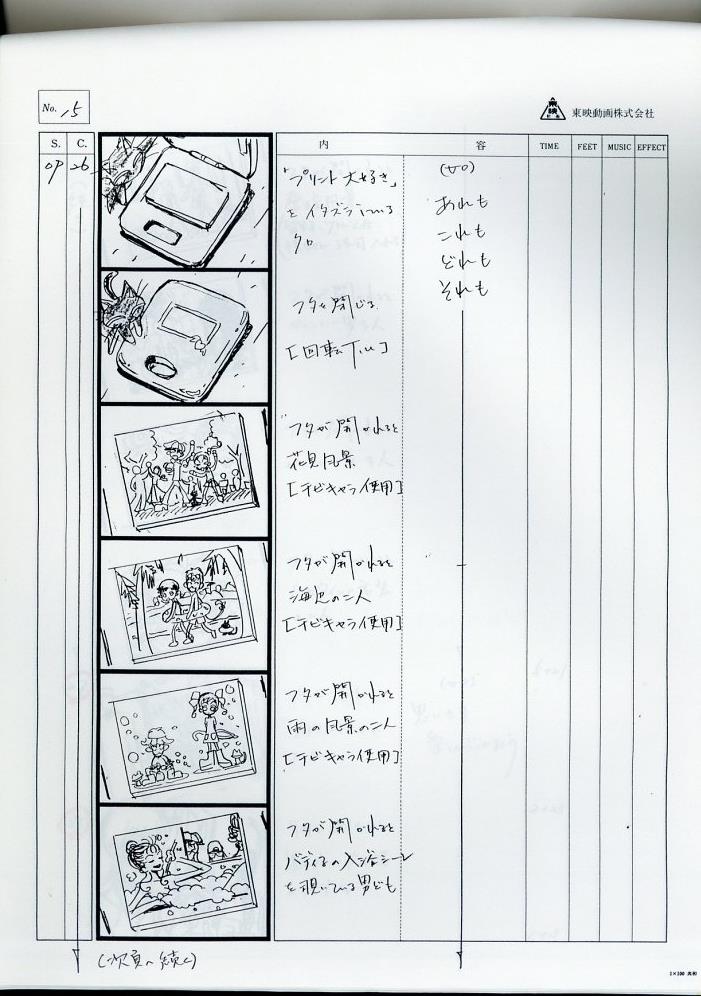 No. 15
東映動画株式会社
S. C. 内 容 TIME FEET MUSIC EFFECT
OP 26
「プリント大好き」
をイタズラしている
クロ
あれも
これも
どれも
それも
フタを閉じる
フタが開かれると
花見風景
[チビキャラ使用]
フタが開かれると
海辺の二人
[チビキャラ使用]
フタが開かれると
雨の風景の二人
[チビキャラ使用]
フタが開かれると
の入浴シーン
を覗いている男ども
(次頁へ続く)